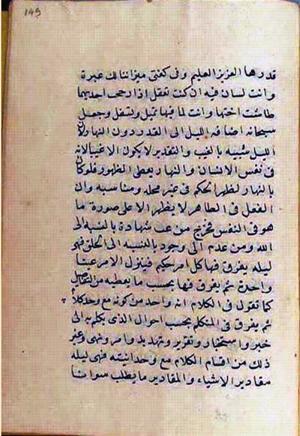 149
قدرها العزيز العليم وفى كفتى ميزانها لك عبرة
وانت لسان فيه ان كنت تعقل اذا رجحت احديهما
طاشت اختها وانت لما فيها تميل وتسفل وجعل
سبحانه اضافة الليل الى القدر دون النهار لان
الليل شبيه بالغيب والتقدير لا يكون الا غيبا لانه
فى نفس الانسان والنهار يعطى الظهور فلو كان
بالنهار لظهر الحكم فى غير محله ومناسبه وان
الفعل فى الظاهر لا يظهر الا على صورة ما
هو فى النفس فيخرج من غيب شهادة بالنسبة الى
الله ومن عدم الى وجود بالنسبة الى الخلق فهى
ليلة يفرق فيها كل امر حكيم فينزل الامر عينا
واحدة ثم يفرق فيها بحسب ما يعطيه من التفاصيل
كما تقول فى الكلام انه واحد من كونه مع وحدته كلاما
ثم يفرق فى المتكلم بحسب احوال الذى يكلم به الى
خبر واستخبار وتقرير وتهديد وامر ونهى وغير
ذلك من اقسام الكلام مع وحدانيته فهى ليلة
مقادير الاشياء والمقادير ما يطلب سوانا